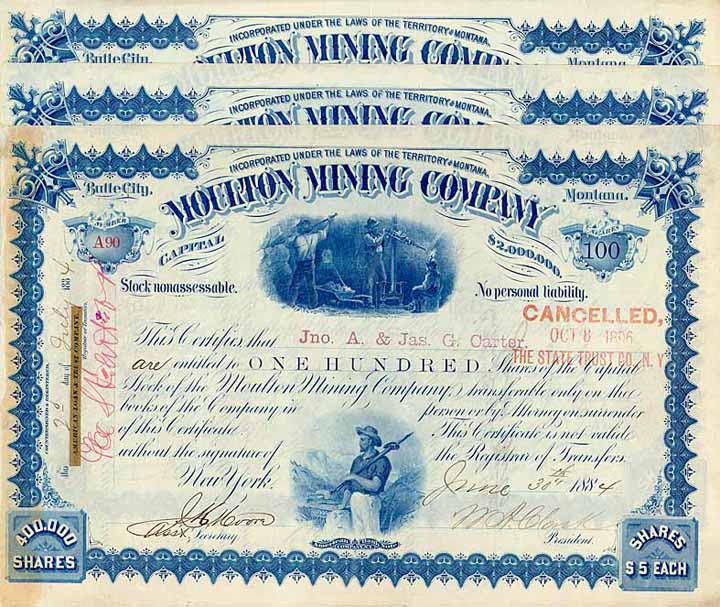 INCORPORATED UNDER THE LAWS OF THE TERRITORY OF MONTANA.
Butte City, MOULTON MINING COMPANY Montana.
INCORPORATED UNDER THE LAWS OF THE TERRITORY OF MONTANA.
Butte City, MOULTON MINING COMPANY Montana.
INCORPORATED UNDER THE LAWS OF THE TERRITORY OF MONTANA.
Butte City, Montana.
MOULTON MINING COMPANY
NUMBER SHARES
A90 100
CAPITAL $2,000,000.
Stock nonassessable. No personal liability.
CANCELLED,
OCT 8 1896
THE STATE TRUST CO. N.Y
This Certifies that Jno. A. & Jas. G. Carter.
are entitled to ONE HUNDRED Shares of the Capital
Stock of the Moulton Mining Company, transferable only on the
books of the Company in person or by Attorney on surrender
of this Certificate This Certificate is not valid
without the signature of the Registrar of Transfers.
New York. June 30th 1884
Asst. Secretary W.A. Clark President.
400,000
SHARES
SHARES
$5 EACH
COUNTERSIGNED & REGISTERED,
this 25 day of July 1884
AMERICAN LOAN & TRUST COMPANY,
Registrar of Transfers.